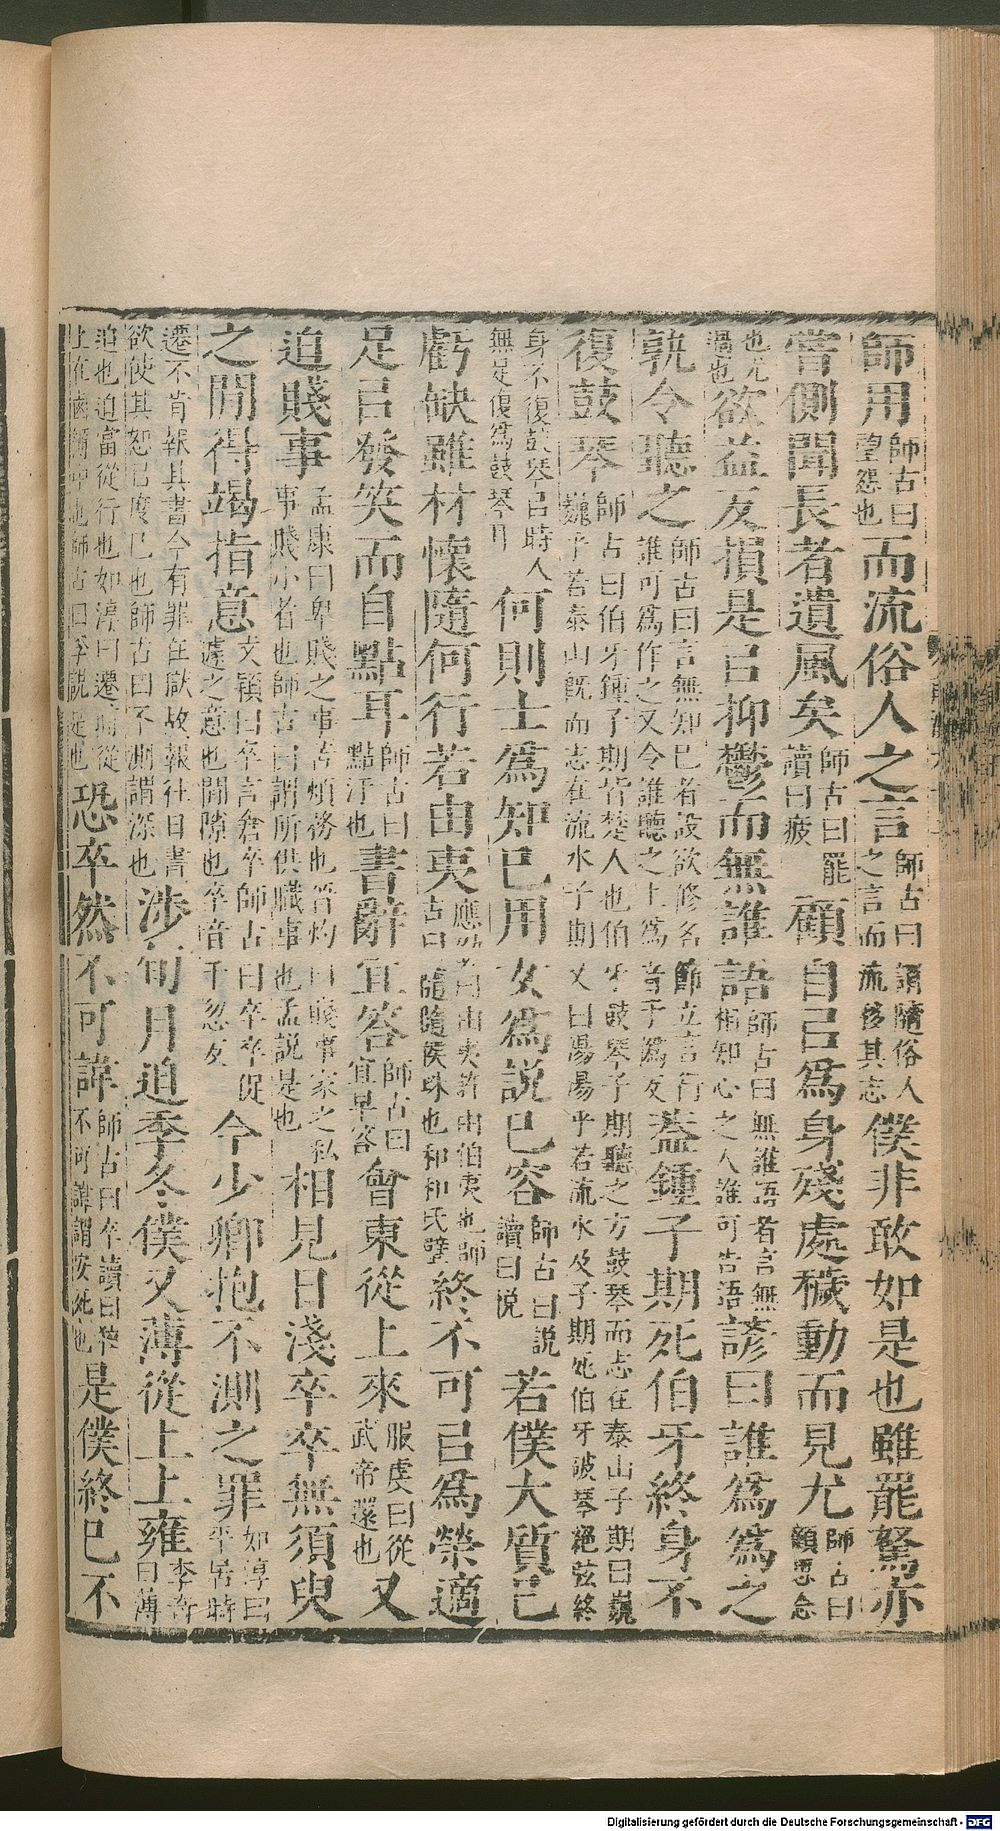 師用師古曰望怨也而流俗人之言師古曰謂隨俗人之言而流移其志僕非敢如是也雖罷駑亦
嘗側聞長者遺風矣師古曰罷讀曰疲顧自㠯爲身殘處穢動而見尤師古曰顧思念
也尤過也欲益反損是㠯抑鬱而無誰語師古曰無誰語者言無相知心之人誰可告語諺曰誰爲爲之
孰令聽之師古曰言無知己者設欲修名節立言行誰可爲作之又令誰聽之上爲音于僞反蓋鍾子期死伯牙終身不
復鼓琴師古曰伯牙鍾子期皆楚人也伯牙鼓琴子期聽之方鼓琴而志在泰山子期曰巍巍乎若泰山旣而志在流水子期又曰湯湯乎若流水及子期死伯牙破琴絕弦終
身不復鼓琴㠯時人無足復爲鼓琴耳何則士爲知己用女爲說己容師古曰說讀曰悅若僕大質已
虧缺雖材懷隨和行若由夷應劭曰由夷許由伯夷也師古曰隨隨侯珠也和和氏璧終不可㠯爲榮適
足㠯發笑而自點耳師古曰點汙也書辭宜答師古曰宜早答會東從上來服虔曰從武帝還也又
迫賤事孟康曰卑賤之事苦煩務也晉灼曰賤事家之私事賤小者也師古曰謂所供職事也孟說是也相見日淺卒卒無須臾
之閒得竭指意文穎曰卒言倉卒師古曰卒卒促遽之意也閒隙也卒音千忽反今少卿抱不測之罪如淳曰平居時
遷不肯報其書今有罪在獄故報往日書欲使其恕㠯度己也師古曰不測謂深也涉旬月迫季冬僕又薄從上上雍李奇曰薄
迫也迫當從行也如淳曰遷時從上在鹵簿中也師古曰李說是也恐卒然不可諱師古曰卒讀曰猝不可諱謂安死也是僕終已不
Digitalisierung gefördert durch die Deutsche Forschungsgemeinschaft - DFG